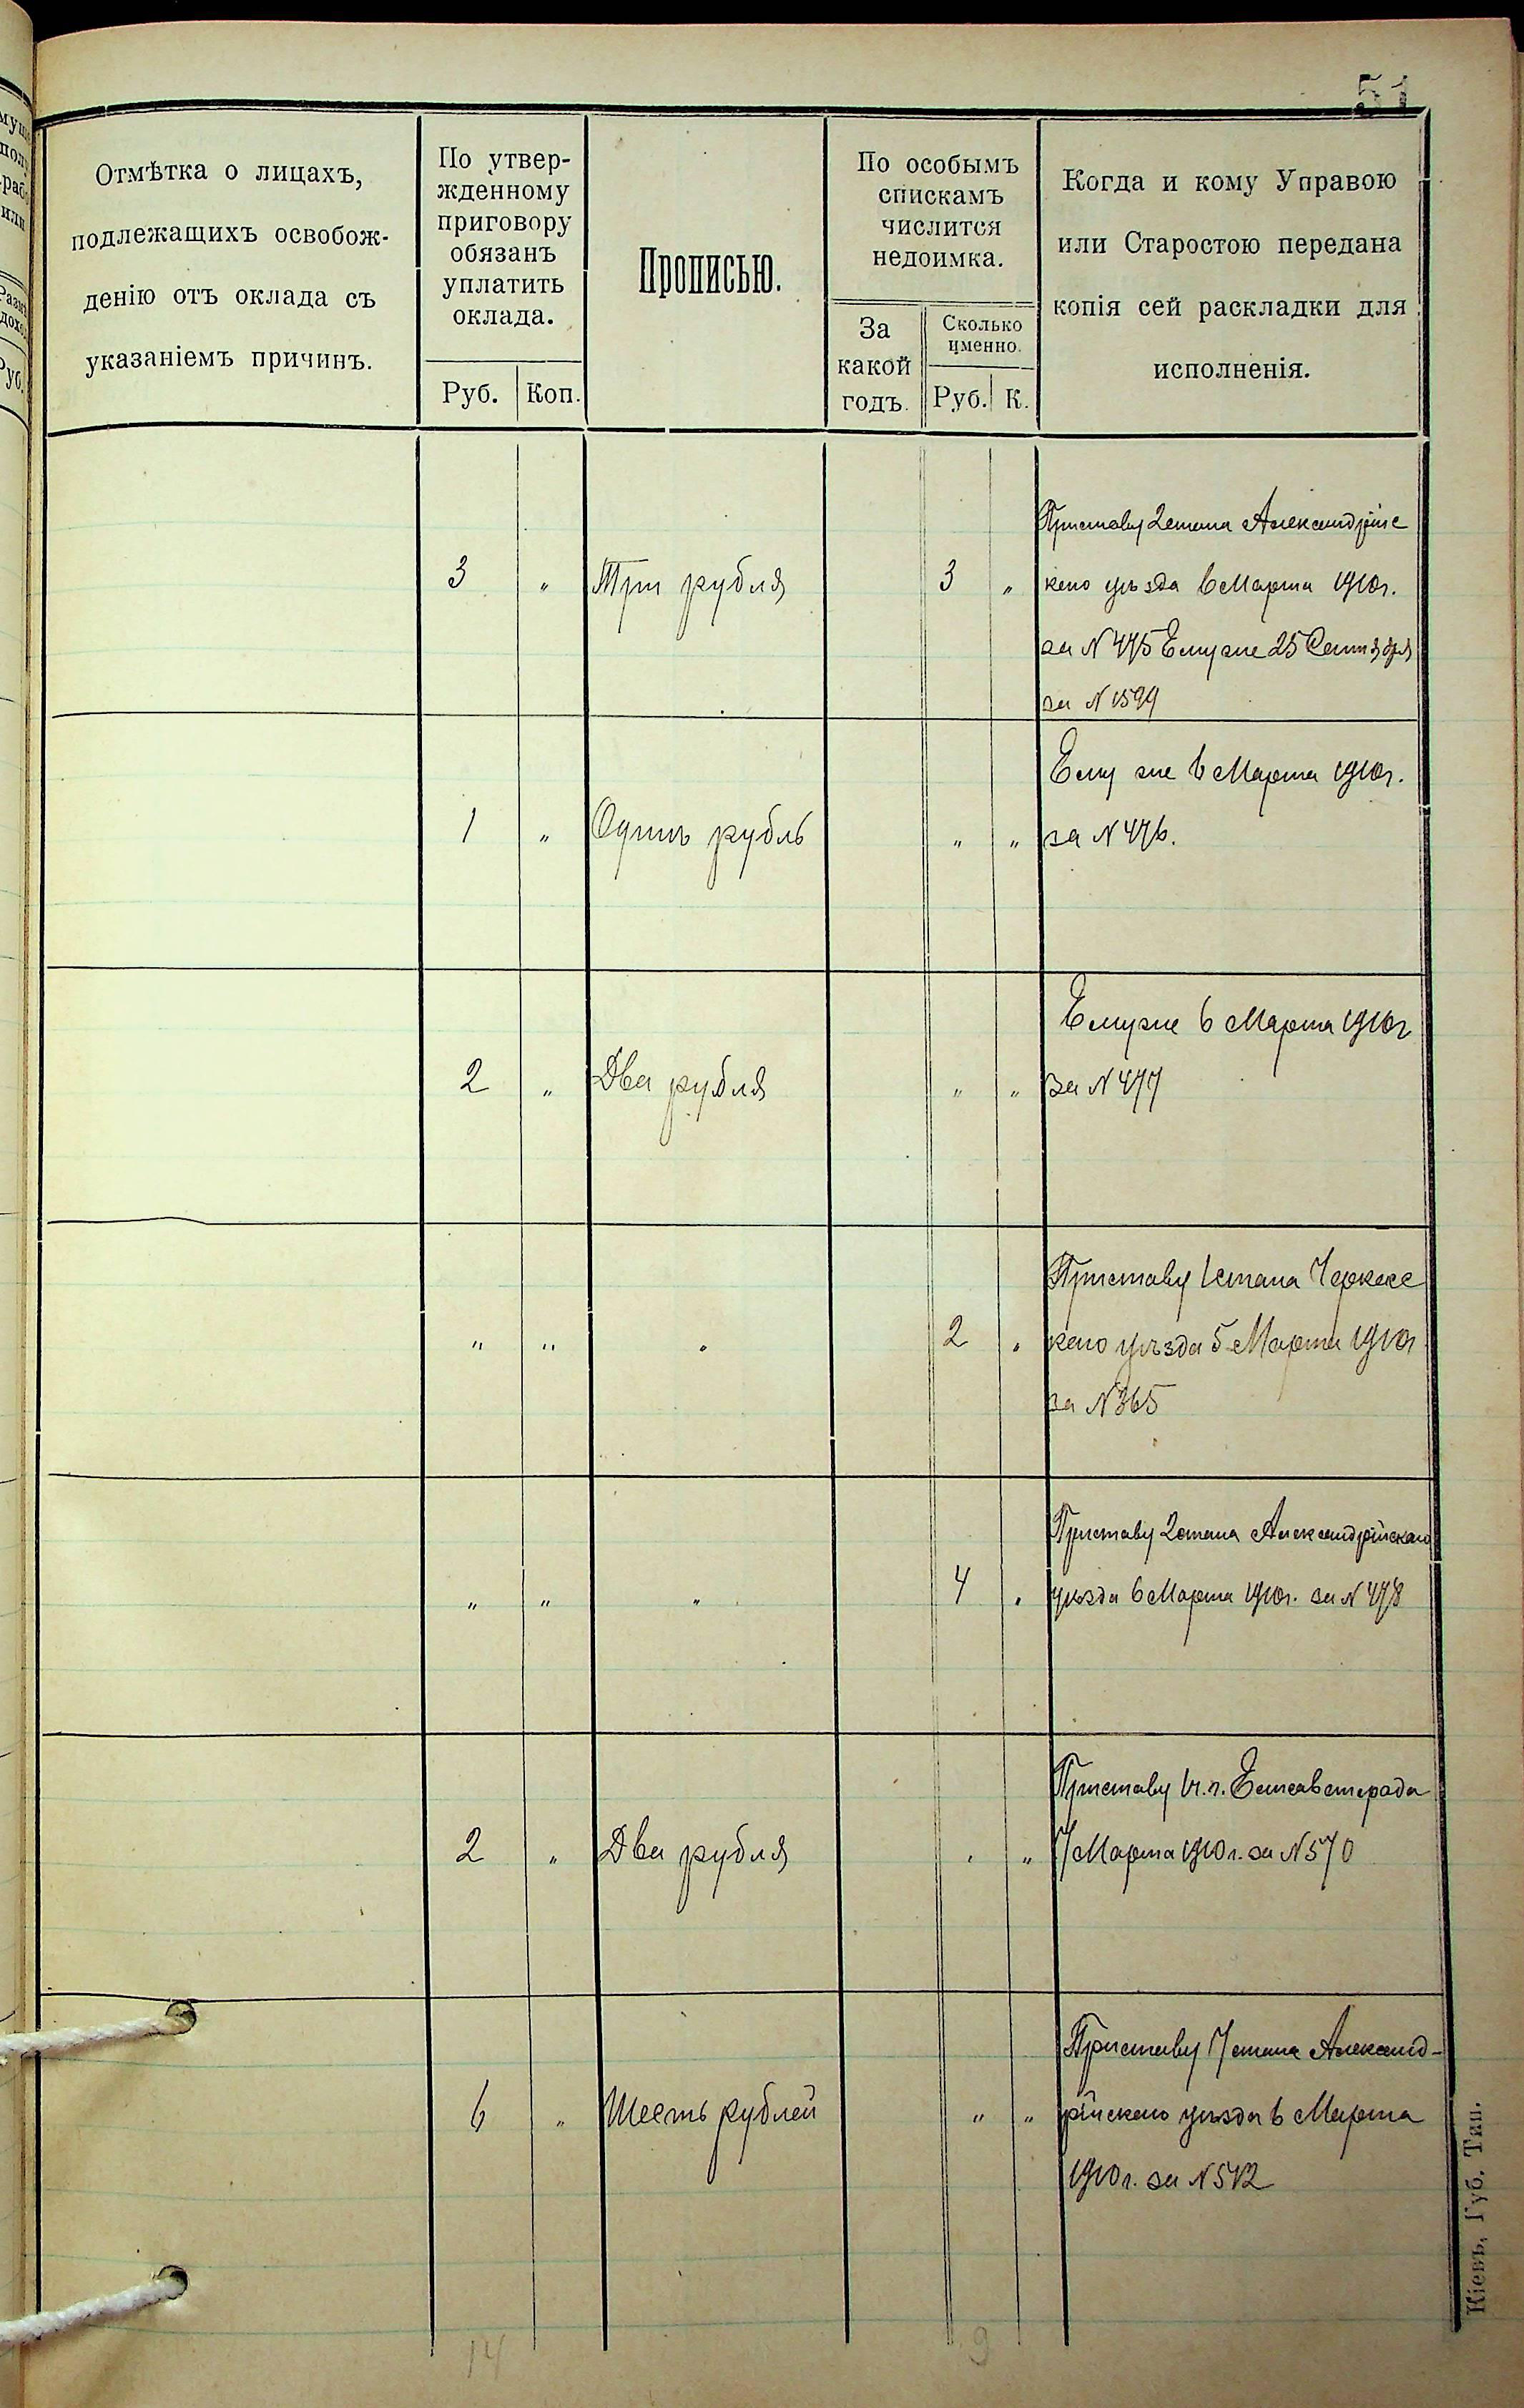 51
Отмѣтка о лицахъ,
подлежащихъ освобож-
денію отъ оклада съ
указаніемъ причинъ.
По утвер-
жденному
приговору
обязанъ
уплатить
оклада.
Руб. Коп.
Прописью.
По особымъ
спискамъ
числится
недоимка.
За
какой
годъ.
Сколько
именно.
Руб. К.
Когда и кому Управою
или Старостою передана
копія сей раскладки для
исполненія.
3 " Три рубля 3 "
Приставу 2 стана Александрійс
кого уѣзда 6 Марта 1910г.
за N 475 Ему же 25 Сентября
за N 1599
1 " Одинъ рубль " "
Ему же 6 Марта 1910г.
за N 476.
2 " Два рубля " "
Ему же 6 Марта 1910г
за N 477
" " " 2 "
Приставу 1 стана Черкасс
кого уѣзда 5 Марта 1910г
за N 365
" " " 4 "
Приставу 2 стана Александрійскаго
уѣзда 6 Марта 1910г. за N 478
2 " Два рубля " "
Приставу 1 ч. г. Елисаветграда
7 Марта 1910 г. за N 570
6 " Шесть рублей " "
Приставу 7 стана Александ-
рійского уѣзда 6 Марта
1910 г. за N 512
14 9
Кіевъ, Губ. Тип.